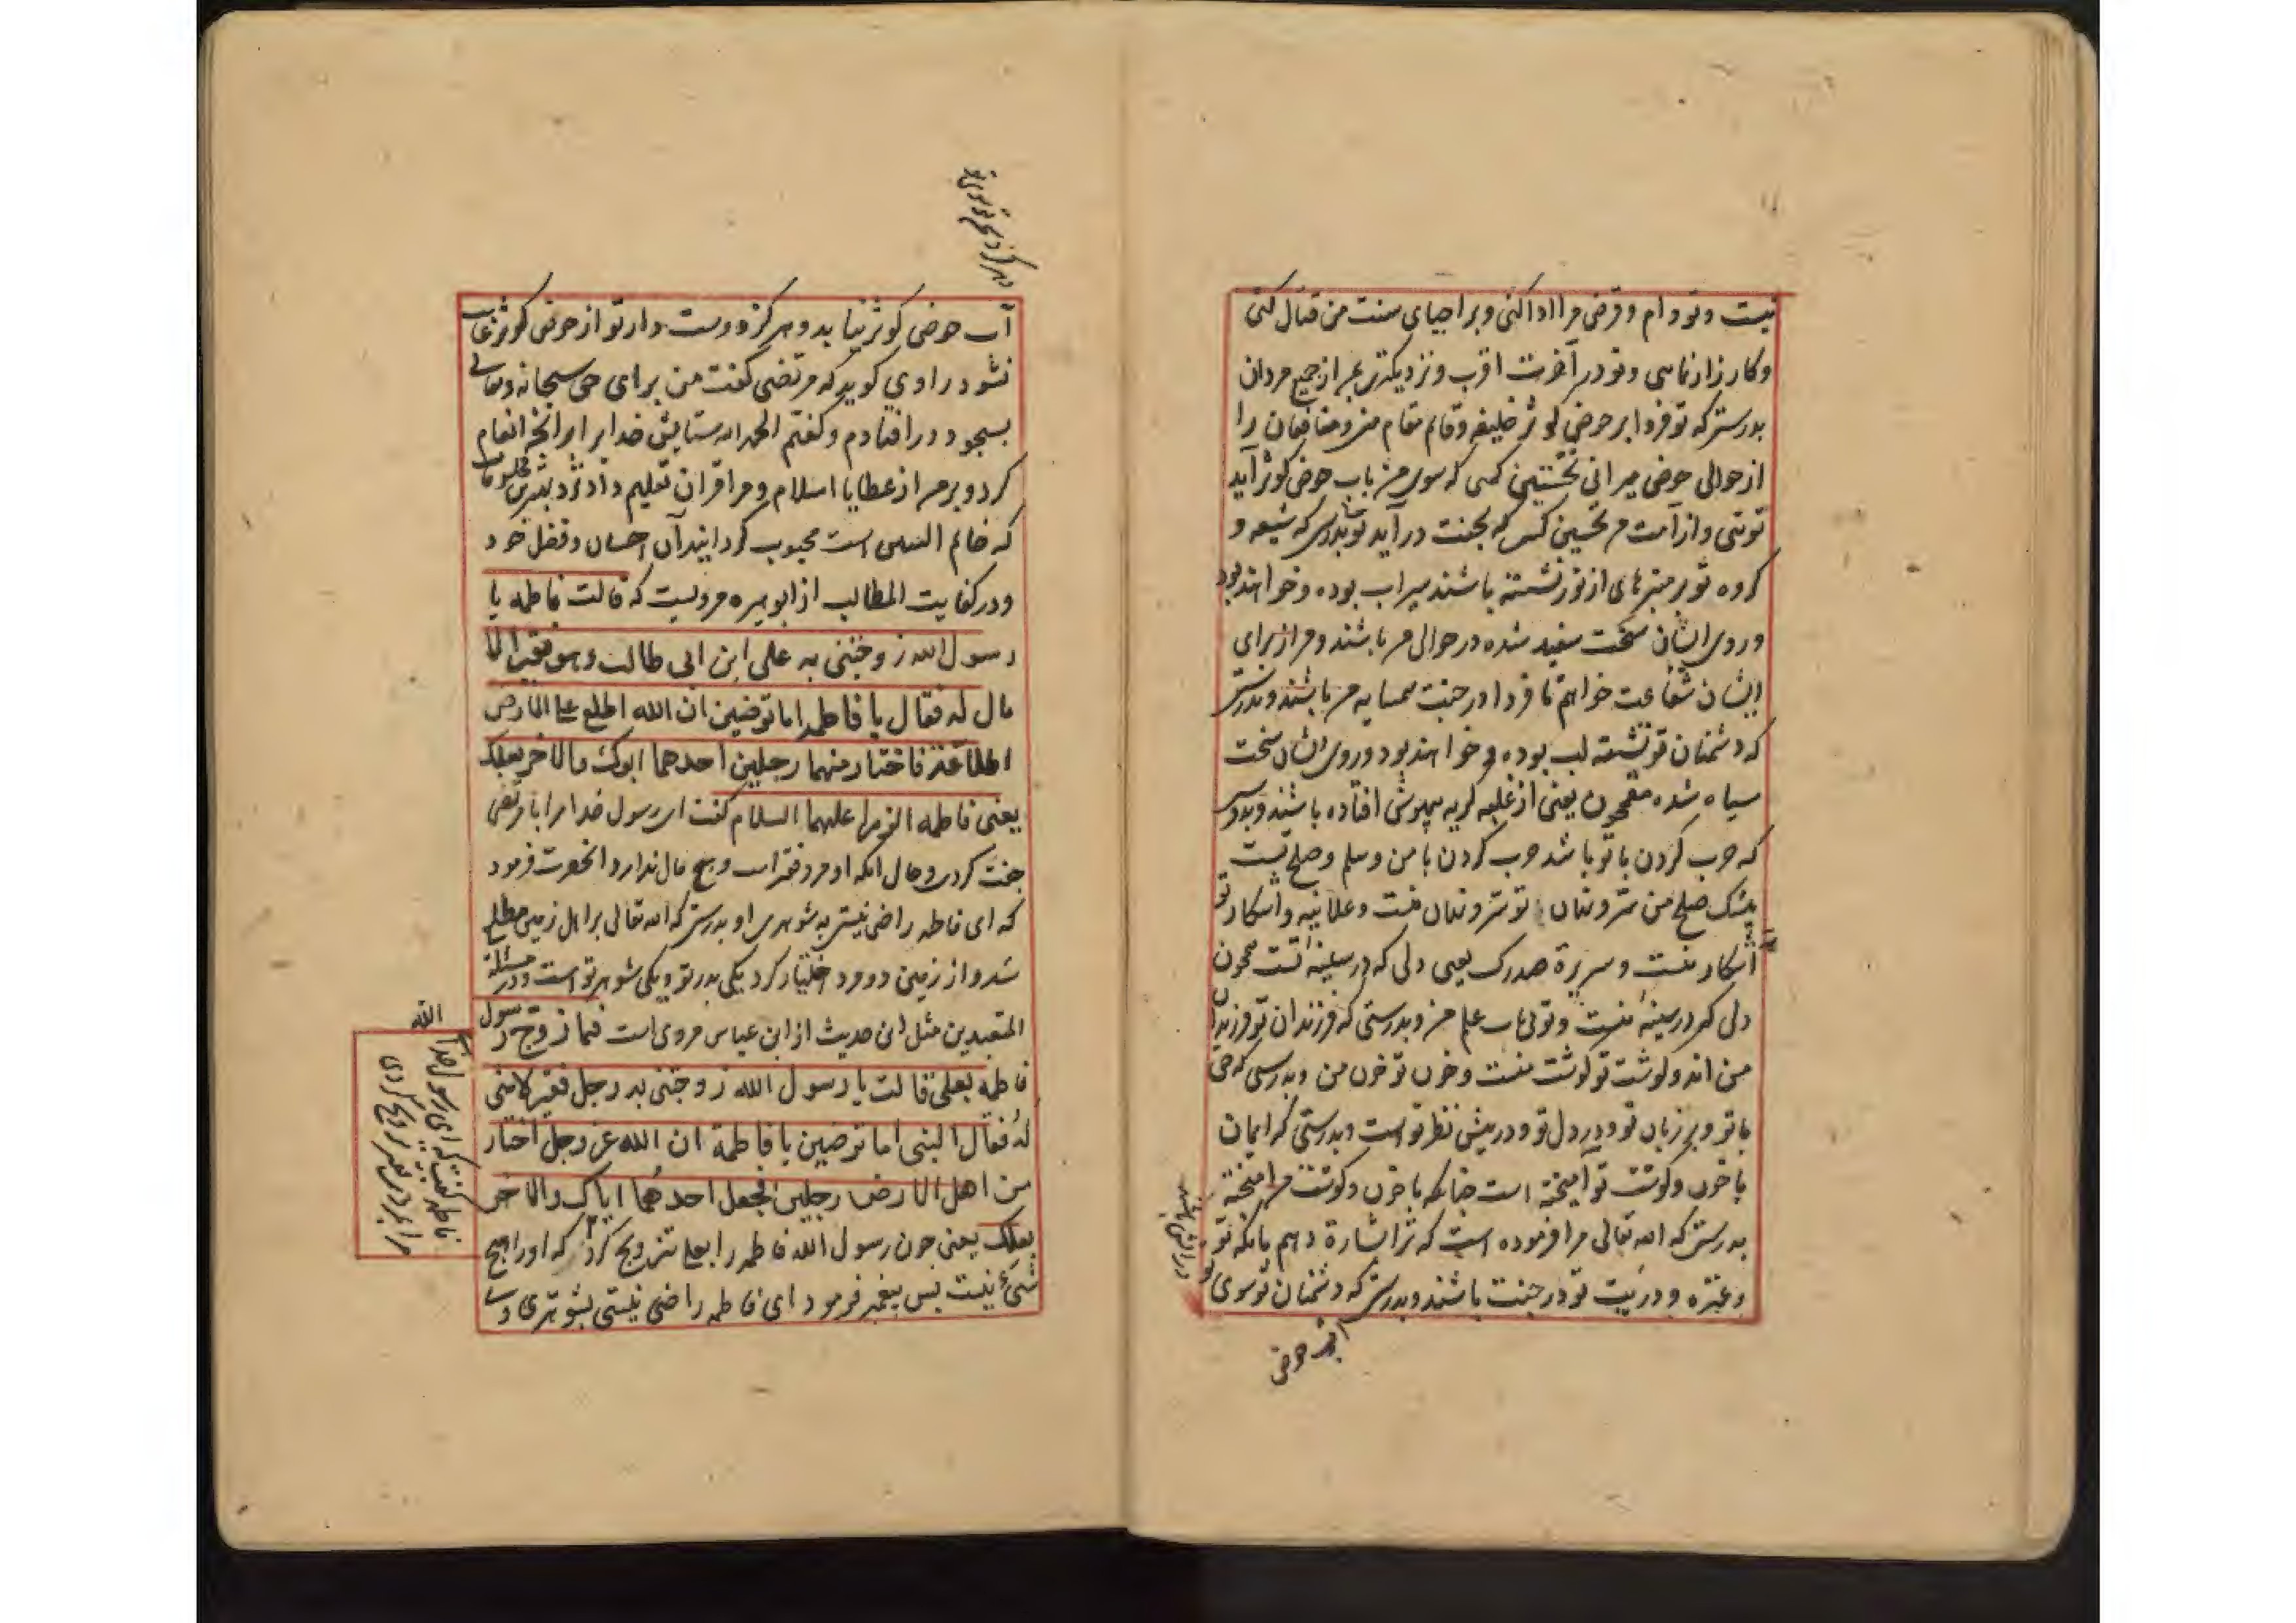 تست و تو دام و قرض مرا ادا کنی و بر احیای سنت من قتال کنی
و کارزار نمایی و تو در آخرت اقرب و نزدیکتری بمن از جمیع مردان
بدرستی که تو فردا بر حوض کوثر خلیفه و قایم مقام من و منافقان را
از حوالی حوض میرانی نخستین کسی که سوی من باب حوض کوثر آید
توئی و از امت من نخستین کس که بجنت درآید تو بدرستی که شیعه و
گروه تو بر منبرهای از نور نشسته باشند سیراب بوده و خواهند بود
و روی ایشان سخت سفید شده در حوالی من باشند و من از برای
ایشان شفاعت خواهم تا فردا در جنت همسایه من باشند و بدرستی
که دشمنان تو تشنه لب بوده و خواهند بود و روی ایشان سخت
سیاه شده مقمحون یعنی از غلبه گریه بیهوش افتاده باشند و بدرستی
که حرب کردن با تو باشد حرب کردن با من و سلم و صلح تست
بیشک صلح من سر و نهان تو سر و نهان منست و علانیه و آشکار تو
آشکار منست و سریرة صدرک یعنی دلی که در سینه تست همچون
دلی که در سینه منست و توئی باب علم من و بدرستی که فرزندان تو فرزندان
من اند و گوشت تو گوشت منست و خون تو خون من و بدرستی که حق
با تو و بر زبان تو و در دل تو و در پیش نظر تو است و بدرستی که ایمان
با خون و گوشت تو آمیخته است چنانکه با خون و گوشت من آمیخته
بدرستی که الله تعالی مرا فرموده است که ترا اشارة دهم بانکه تو
و عترة و ذریت تو در جنت باشند و بدرستی که دشمنان تو سوی
در آتش باشند
آب حوض
آب حوض کوثر نیابد و هرگز دوست دار تو از حوض کوثر غایب
نشود راوی گوید که مرتضی گفت من برای حق سبحانه و تعالی
بسجود در افتادم و گفتم الحمد لله ستایش خدایرا برانچه انعام
کرد و بر من از عطایا اسلام و مرا قرآن تعلیم داد نزد بهترین مخلوقات
که خاتم النبیین است محبوب گردانید آن احسان و فضل خود
و در کفایت المطالب از ابو هریره مرویست که قالت فاطمه یا
رسول الله زوجتنی به علی ابن ابی طالب و هو فقیر لا
مال له فقال یا فاطمه اما ترضین ان الله اطلع علی الارض
اطلاعة فاختار منهما رجلین احدهما ابوک والاخر بعلک
یعنی فاطمه الزهرا علیهما السلام گفت ای رسول خدا مرا با مرتضی
جفت کردی و حال آنکه او مرد فقیر است و هیچ مال ندارد آنحضرت فرمود
که ای فاطمه راضی نیستی به شوهری او بدرستی که الله تعالی بر اهل زمین مطلع
شد و از زمین دو مرد اختیار کرد یکی پدر تو و یکی شوهر تو است و در مسئلة
المتعبدین مثل این حدیث از ابن عباس مروی است فما زوج رسول الله
فاطمه بعلی قالت یا رسول الله زوجتنی بد رجل فقیر لا شی
له فقال النبی اما ترضین یا فاطمة ان الله عز وجل اختار
من اهل الارض رجلین فجعل احدهما اباک والاخر
بعلک یعنی چون رسول الله فاطمه را بعلی تزویج کرد که او را هیچ
شیء نیست پس پیغمبر فرمود ای فاطمه راضی نیستی بشوهری
فاطمه گفت که ای رسول خدا
مرا بمردی فقیر تزویج کردی